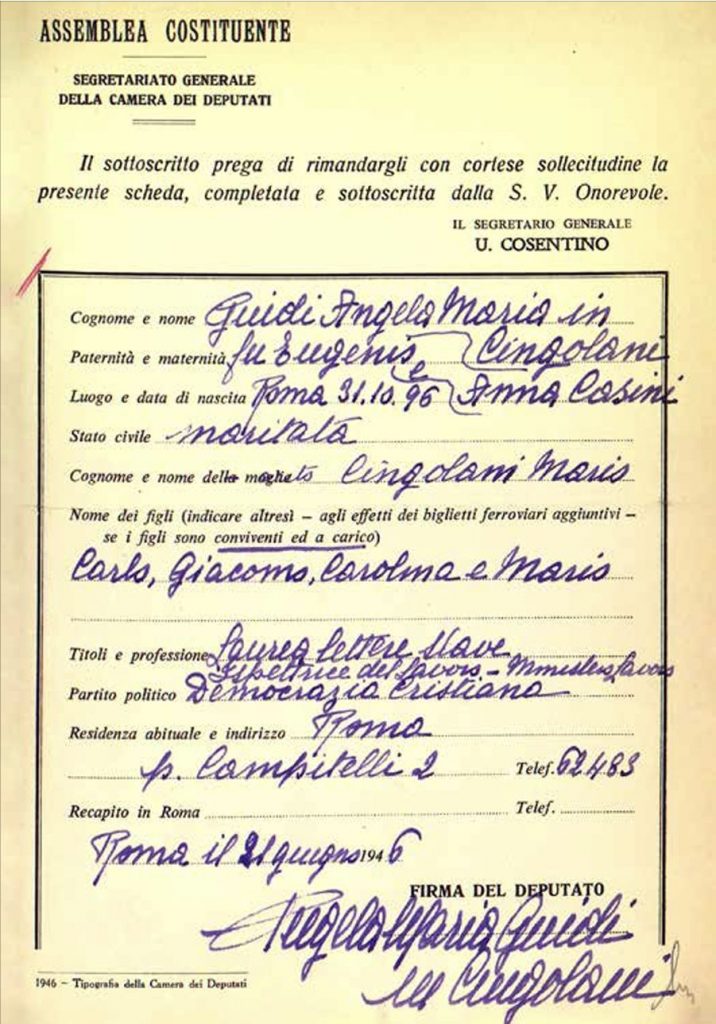 ASSEMBLEA COSTITUENTE
SEGRETARIATO GENERALE
DELLA CAMERA DEI DEPUTATI
Il sottoscritto prega di rimandargli con cortese sollecitudine la
presente scheda, completata e sottoscritta dalla S. V. Onorevole.
IL SEGRETARIO GENERALE
U. COSENTINO
Cognome e nome Guidi Angela Maria in
Cingolani
Paternità e maternità fu Eugenio e Anna Casini
Luogo e data di nascita Roma 31.10.96
Stato civile maritata
Cognome e nome della moglie Cingolani Mario
Nome dei figli (indicare altresì – agli effetti dei biglietti ferroviari aggiuntivi –
se i figli sono conviventi ed a carico)
Carlo, Giacomo, Carolina e Mario
Titoli e professione Laurea lettere slave
Ispettrice del lavoro - Ministero Lavoro
Partito politico Democrazia Cristiana
Residenza abituale e indirizzo Roma
p. Campitelli 2 Telef. 62483
Recapito in Roma Telef.
Roma il 21 giugno 1946
FIRMA DEL DEPUTATO
Angela Maria Guidi
in Cingolani
1946 – Tipografia della Camera dei Deputati